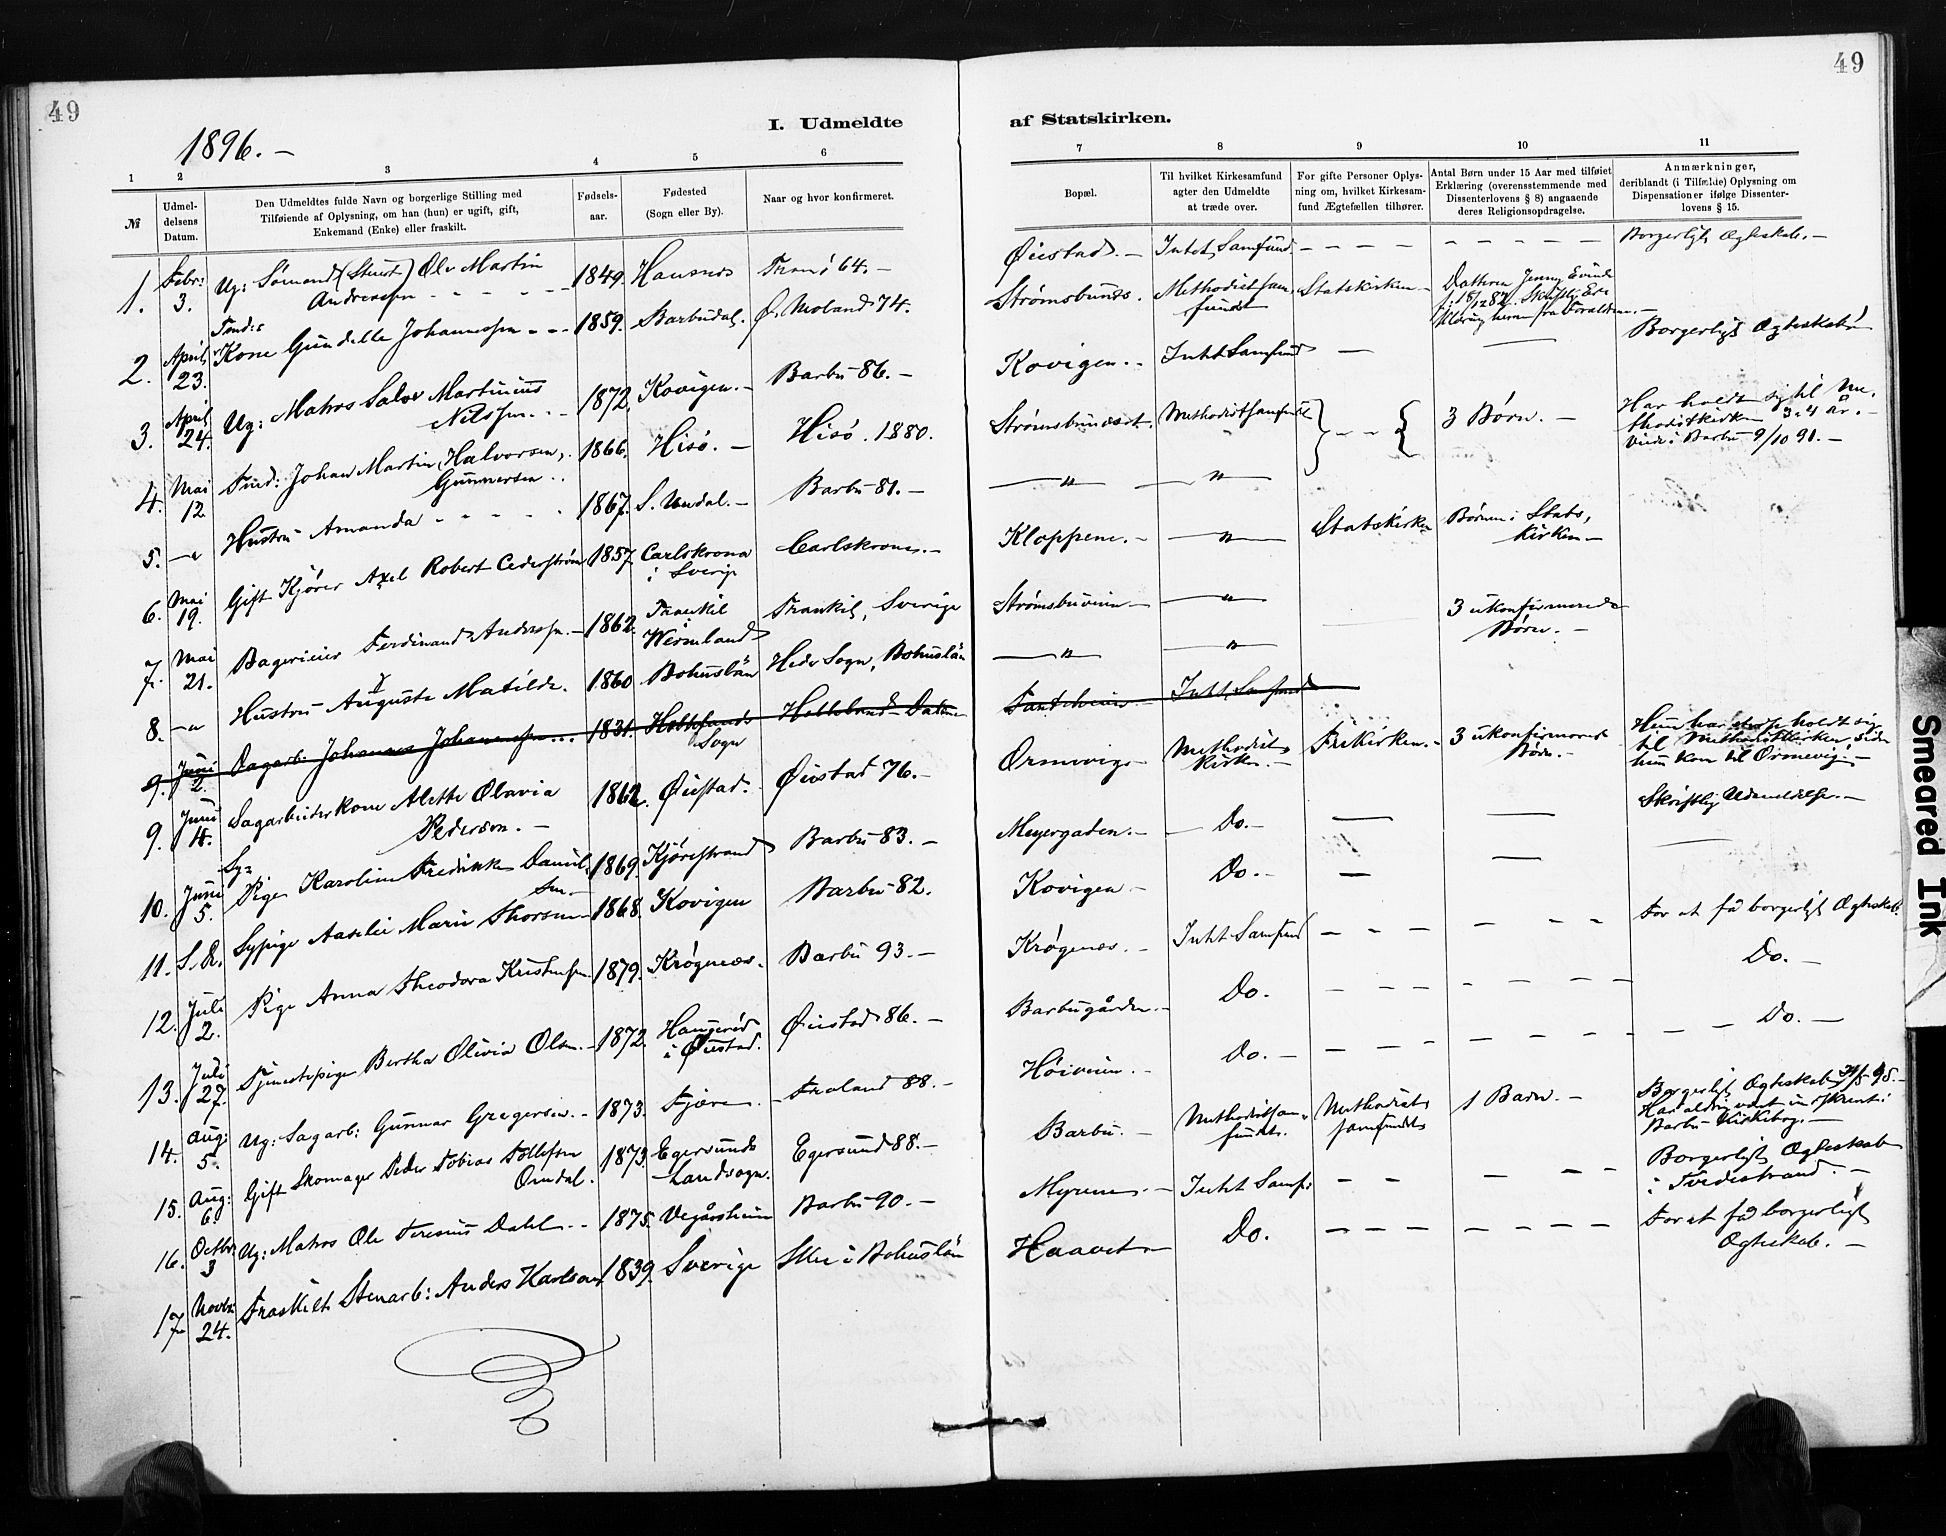 49
49
1896. –
I. Udmeldte
af Statskirken.
1
2
3
4
5
6
7
8
9
10
11
№
Udmel-
delsens
Datum.
Den Udmeldtes fulde Navn og borgerlige Stilling med
Tilføiende af Oplysning, om han (hun) er ugift, gift,
Enkemand (Enke) eller fraskilt.
Fødsels-
aar.
Fødested
(Sogn eller By).
Naar og hvor konfirmeret.
Bopæl.
Til hvilket Kirkesamfund
agter den Udmeldte
at træde over.
For gifte Personer Oplys-
ning om, hvilket Kirkesam-
fund Ægtefællen tilhører.
Antal Børn under 15 Aar med tilføiet
Erklæring (overensstemmende med
Dissenterlovens § 8) angaaende
deres Religionsopdragelse.
Anmærkninger,
deriblandt (i Tilfælde) Oplysning om
Dispensationer ifølge Dissenter-
lovens § 15.
1. Febr: 3. Ug: Sømand (Stuert) Olv Martin 1849. Tromö 64. – Øiestad. – Intet Samfund – – – – – – – – – – Borgerligt Ægteskab. –
Andreassen
2. April 23. Kone Gundelle Johannessen – – 1859. Barbudal. Ø. Moland 74. Strømsbunds. Methodistsam-
fundet Statskirken – Datteren Jenny
3. April 24. Ug: Matros Salve Martinius 1872. Kovigen. – Barbu 86. – Kovigen. – Intet Samfund — — Borgerligt Ægteskab
Nilssen. –
4. Mai 12 Johan Martin Halvorsen, 1866. Hisö. – Hisö. 1880. Strømsbundset. Methodistsamfundet 3 Børn. – Har holdt sig til Me-
thodistkirken 3-4 År. –
Viede i Barbu 9/10 91. –
Gunnersen
5. –"– Hustru Amanda – – – – 1867. S. Undal. – Barbu 81. – —"— —"—
6. Mai 19. Gift Kjører Axel Robert Cederstrøm 1857 Carlskrona
i Sverige Carlskrona. – Kloppene. – —"— Statskirken Børnene i Stats-
kirken –
7. Mai 21. Bagerieier Ferdinand Anderssen. – 1862. Trankil
i
Wermland Trankil, Sverige Strømsbuveien – —"— 3 ukonfirmerede
Børn. –
8. –"– Hustru Auguste Matilde. 1860 Bohuslän Hede Sogn, Bohuslän —"— —"—
9. Juni 2. Dagarb. Johannes Johannessen... 1831. Sogn Intet Samfund
9. Juni 4. Sagarbeiderkone Alette Olavia 1862. Øiestad. Øiestad 76. – Ormevig – Methodist-
kirken. – Frikirken. – 3 ukonfirmerede
Børn. – Hun har holdt sig
til Methodistkirken siden
hun kom til Ormevig. –
Pederson. –
10. Juni 5. Sy-
Pige Karoline Fredrikke Daniel- 1869. Kjørestrand Barbu 83. – Meyergaten. – Do. – — — Skriftlig Udmeldelse. –
sen –
11. S. D. Sypige Aaselie Marie Thorsen 1868. Kovigen Barbu 82. Kovigen – Do. – — —
12. Juli 2. Pige Anna Theodora Kristensen 1879. Krøgenes. Barbu 93. – Krøgenæs. – Intet Samfund – – – – – – – For at få borgerligt Ægteskab.
13. Juli 27. Tjenestepige Bertha Olivia Olsen. – 1872. Haugerød
i Øiestad. Øiestad 86. – Barbugården. – Do. – – – – – – – – Do. –
14. Aug: 5. Ug: Sagarb: Gunnar Gregersen. – 1873. Fjære. Froland 88. – Høiveien. – Do. – – – – – – – – – – Do. –
15. Aug: 6. Gift Skomager Peder Tobias Tollefsen 1873. Egersunds
Landsogn. Egersund 88. – Barbu. – Methodistsam-
fundet. Methodist-
samfundet 1 Barn. – Borgerligt Ægteskab 95. –
Har aldrig været
Barbu Kirkebog. –
Omdal.
16. Octbr 3 Ug: Matros Ole Teresius Dahl. – 1875. Vegårsheien Barbu 90. – Myrene. – Intet Samf: – – – – – Borgerligt Ægteskab
i Tvedestrand. –
17. Novbr: 24. Fraskilt Stenarb: Anders Karlson 1839. Sverige Skee i Bohuslän Haavet – Do. – – – – – – – – For at få borgerligt
Ægteskab. –
Smeared Ink